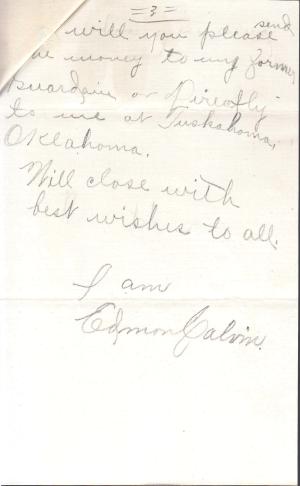 = 3 =
will you please send
me money to my former
guardain or Directly
to me at Tuskahoma,
Oklahoma.
Will close with
best wishes to all.
I am
Edmon Calvin.